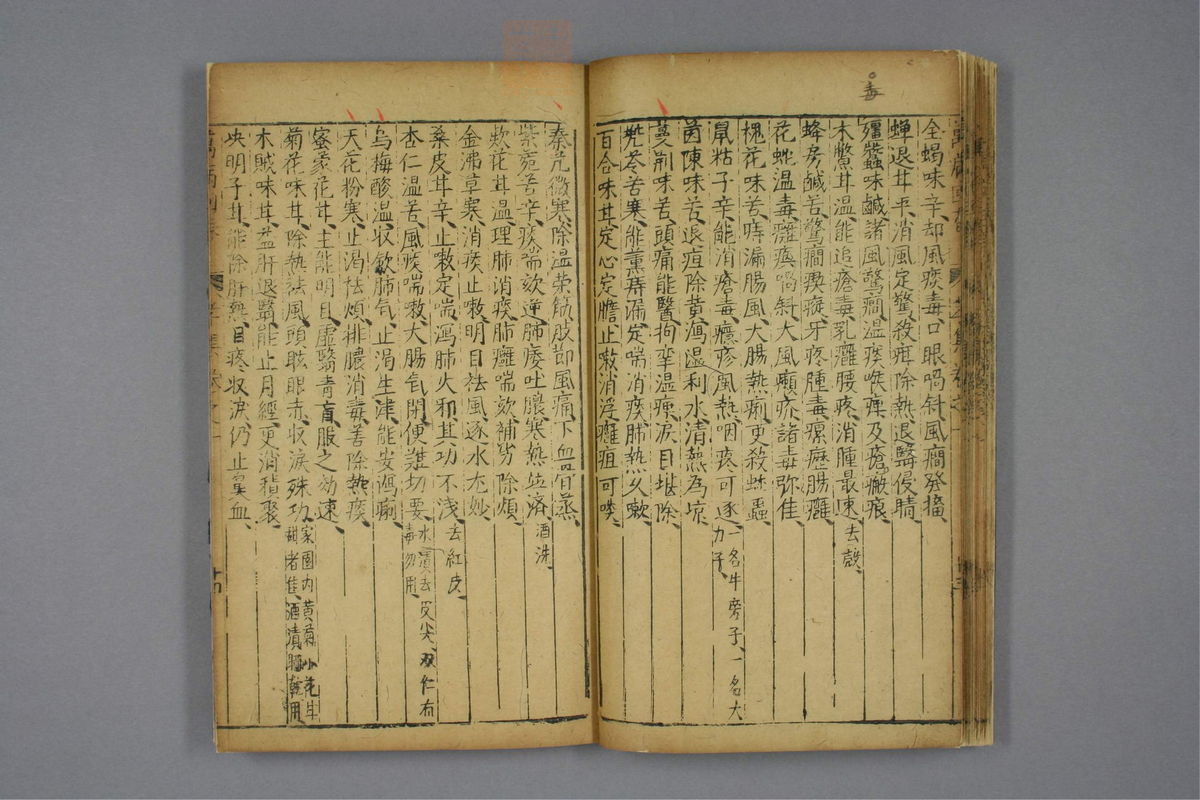 毒
全蝎味辛却風痰毒口眼喎斜風癇發搐
蟬退甘平消風定驚殺疳除熱退醫侵睛
殭蠶味鹹諸風驚癇溫痰喉痺及瘡瘢痕
木鱉甘溫能追瘡毒乳癰腰疼消腫最速去殼
蜂房鹹苦驚癇瘈瘲牙疼腫毒瘰癧腸癰
花蛇溫毒癱瘓喎斜大風癩疥諸毒弥佳
槐花味苦痔漏腸風大腸熱痢更殺蚘蟲
鼠粘子辛能消瘡毒癮疹風熱咽疼可逐一名牛旁子一名大力子
茵陳味苦退疸除黃瀉溫利水清熱為凉
蔓荆味苦頭痛能醫拘攣温痺淚目堪除
兠苓苦寒能薰痔漏定喘消痰肺熱久嗽
百合味甘定心定膽止嗽消浮癰疽可啖
秦艽微寒除温荣筋肢節風痛下血骨蒸
紫菀苦辛痰喘欬逆肺痿吐膿寒熱並済酒洗
欵花甘温理肺消痰肺癰喘欬補劳除煩
金沸草寒消痰止嗽明目袪風逐水尤妙
桑皮甘辛止嗽定喘瀉肺火邪其功不淺去紅皮
杏仁温苦風痰喘嗽大腸気閉便難切要水漬去皮尖双仁有毒勿用
烏梅酸温収歛肺気止渴生津能安瀉痢
天花粉寒止渴袪煩排膿消毒善除熱痰
蜜蒙花甘主能明目虛醫青盲服之効速
菊花味甘除熱袪風頭眩眼赤収淚殊功家園内黃菊小花味甜者佳酒漬曬乾用
木賊味甘益肝退醫能止月經更消積聚
决明子甘能除肝熱目疼収淚仍止鼻血